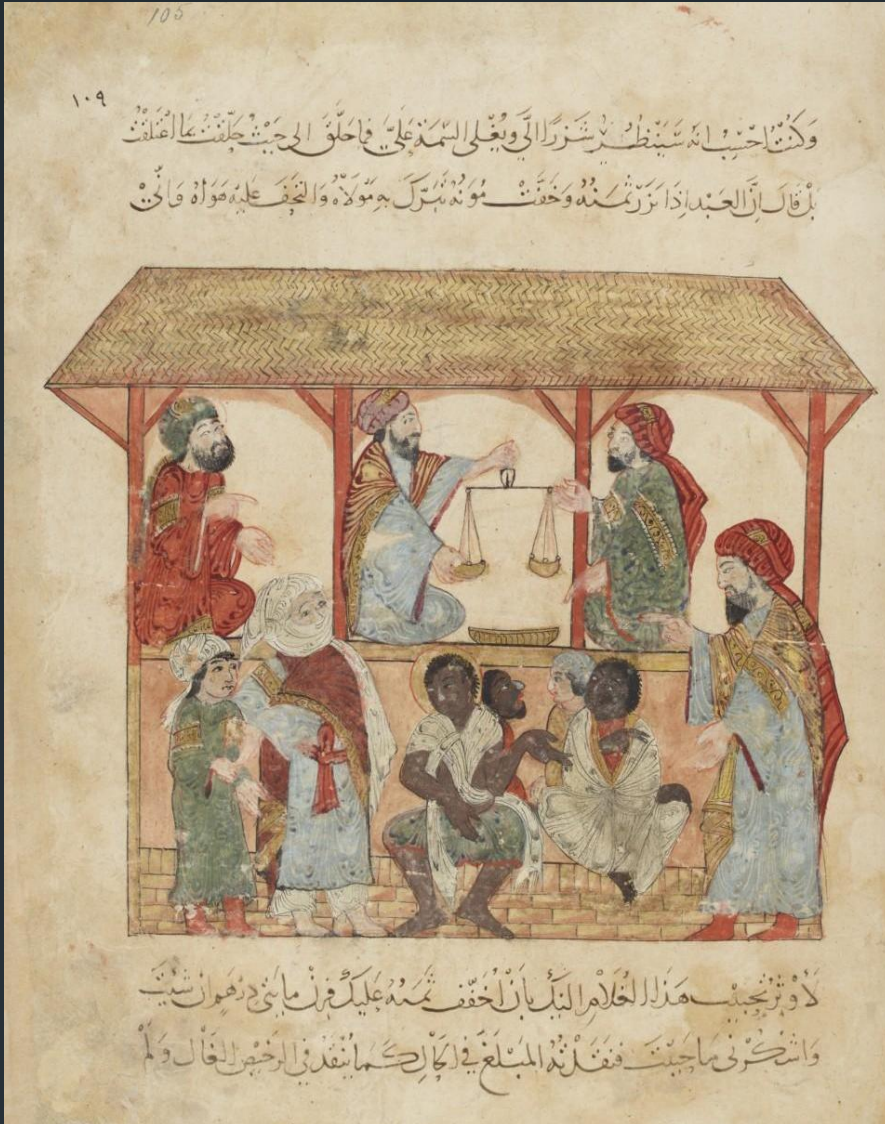 105
١٠٩
وَكُنْتُ اَحْسِبُ انه سَيَنْظُرُ شَزْرًا اِلَيَّ وَيُغْلى السِّمَةَ عَلَيَّ فما حَلَّقَ الى حَيْثُ حَلَّقْتُ وَلا اعْتَلَقَ بمَا اعْتَلَقْتُ
بَلْ قَالَ اِنَّ العَبْدَ اِذَا نَزَرَ ثَمَنُهُ وَخَفَّتْ مُوَنُهُ تَبَرَّكَ بِهِ مَوْلَاهُ وَالْتَحَفَ عَلَيْهِ هَوَاهُ وَاِنِّي
لَأُوثِرُ تَحْبِيْبَ هَذَا الغُلَامِ اِلَيْكَ بِأَنْ اُخَفِّفَ ثَمَنَهُ عَلَيْكَ فَزِنْ مِائَتَيْ دِرْهَمٍ اِنْ شِئْتَ
وَاشْكُرْنِي مَا حَيِيْتَ فَنَقَدْتُهُ المَبْلَغَ في الحَالِ كَمَا يُنْقَدُ فِي الرَّخِيْصِ الغَالِ وَلَمْ